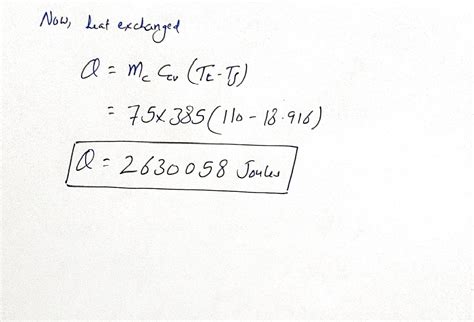 Now, heat exchanged
Q = m_c C_cu (T_t - T_f)
= 75x385(110 - 18.916)
Q = 2630058 Joules